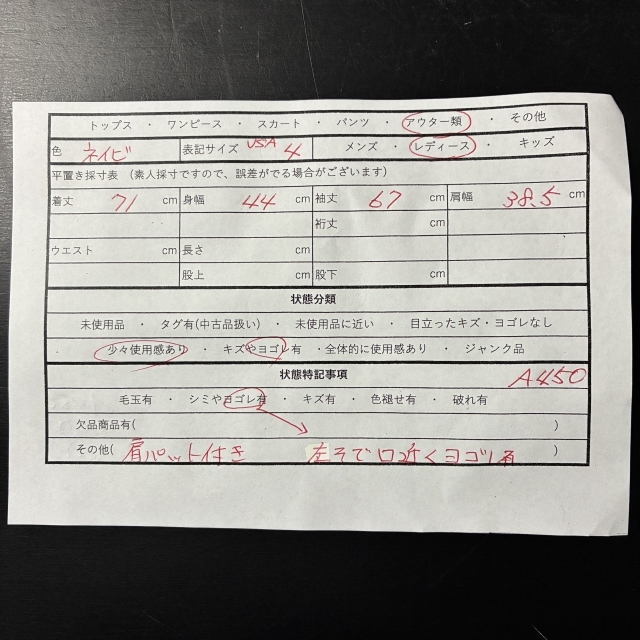 トップス ・ ワンピース ・ スカート ・ パンツ ・ アウター類 ・ その他
色 ネイビ 表記サイズ USA 4 メンズ ・ レディース ・ キッズ
平置き採寸表 (素人採寸ですので、誤差がでる場合がございます)
着丈 71 cm 身幅 44 cm 袖丈 67 cm 肩幅 38.5 cm
裄丈 cm
ウエスト cm 長さ cm
股上 cm 股下 cm
状態分類
未使用品 ・ タグ有(中古品扱い) ・ 未使用品に近い ・ 目立ったキズ・ヨゴレなし
少々使用感あり ・ キズやヨゴレ有 ・全体的に使用感あり ・ ジャンク品
状態特記事項 A450
毛玉有 ・ シミやヨゴレ有 ・ キズ有 ・ 色褪せ有 ・ 破れ有
欠品商品有( )
その他( 肩パット付き 左そで口近くヨゴレ有 )